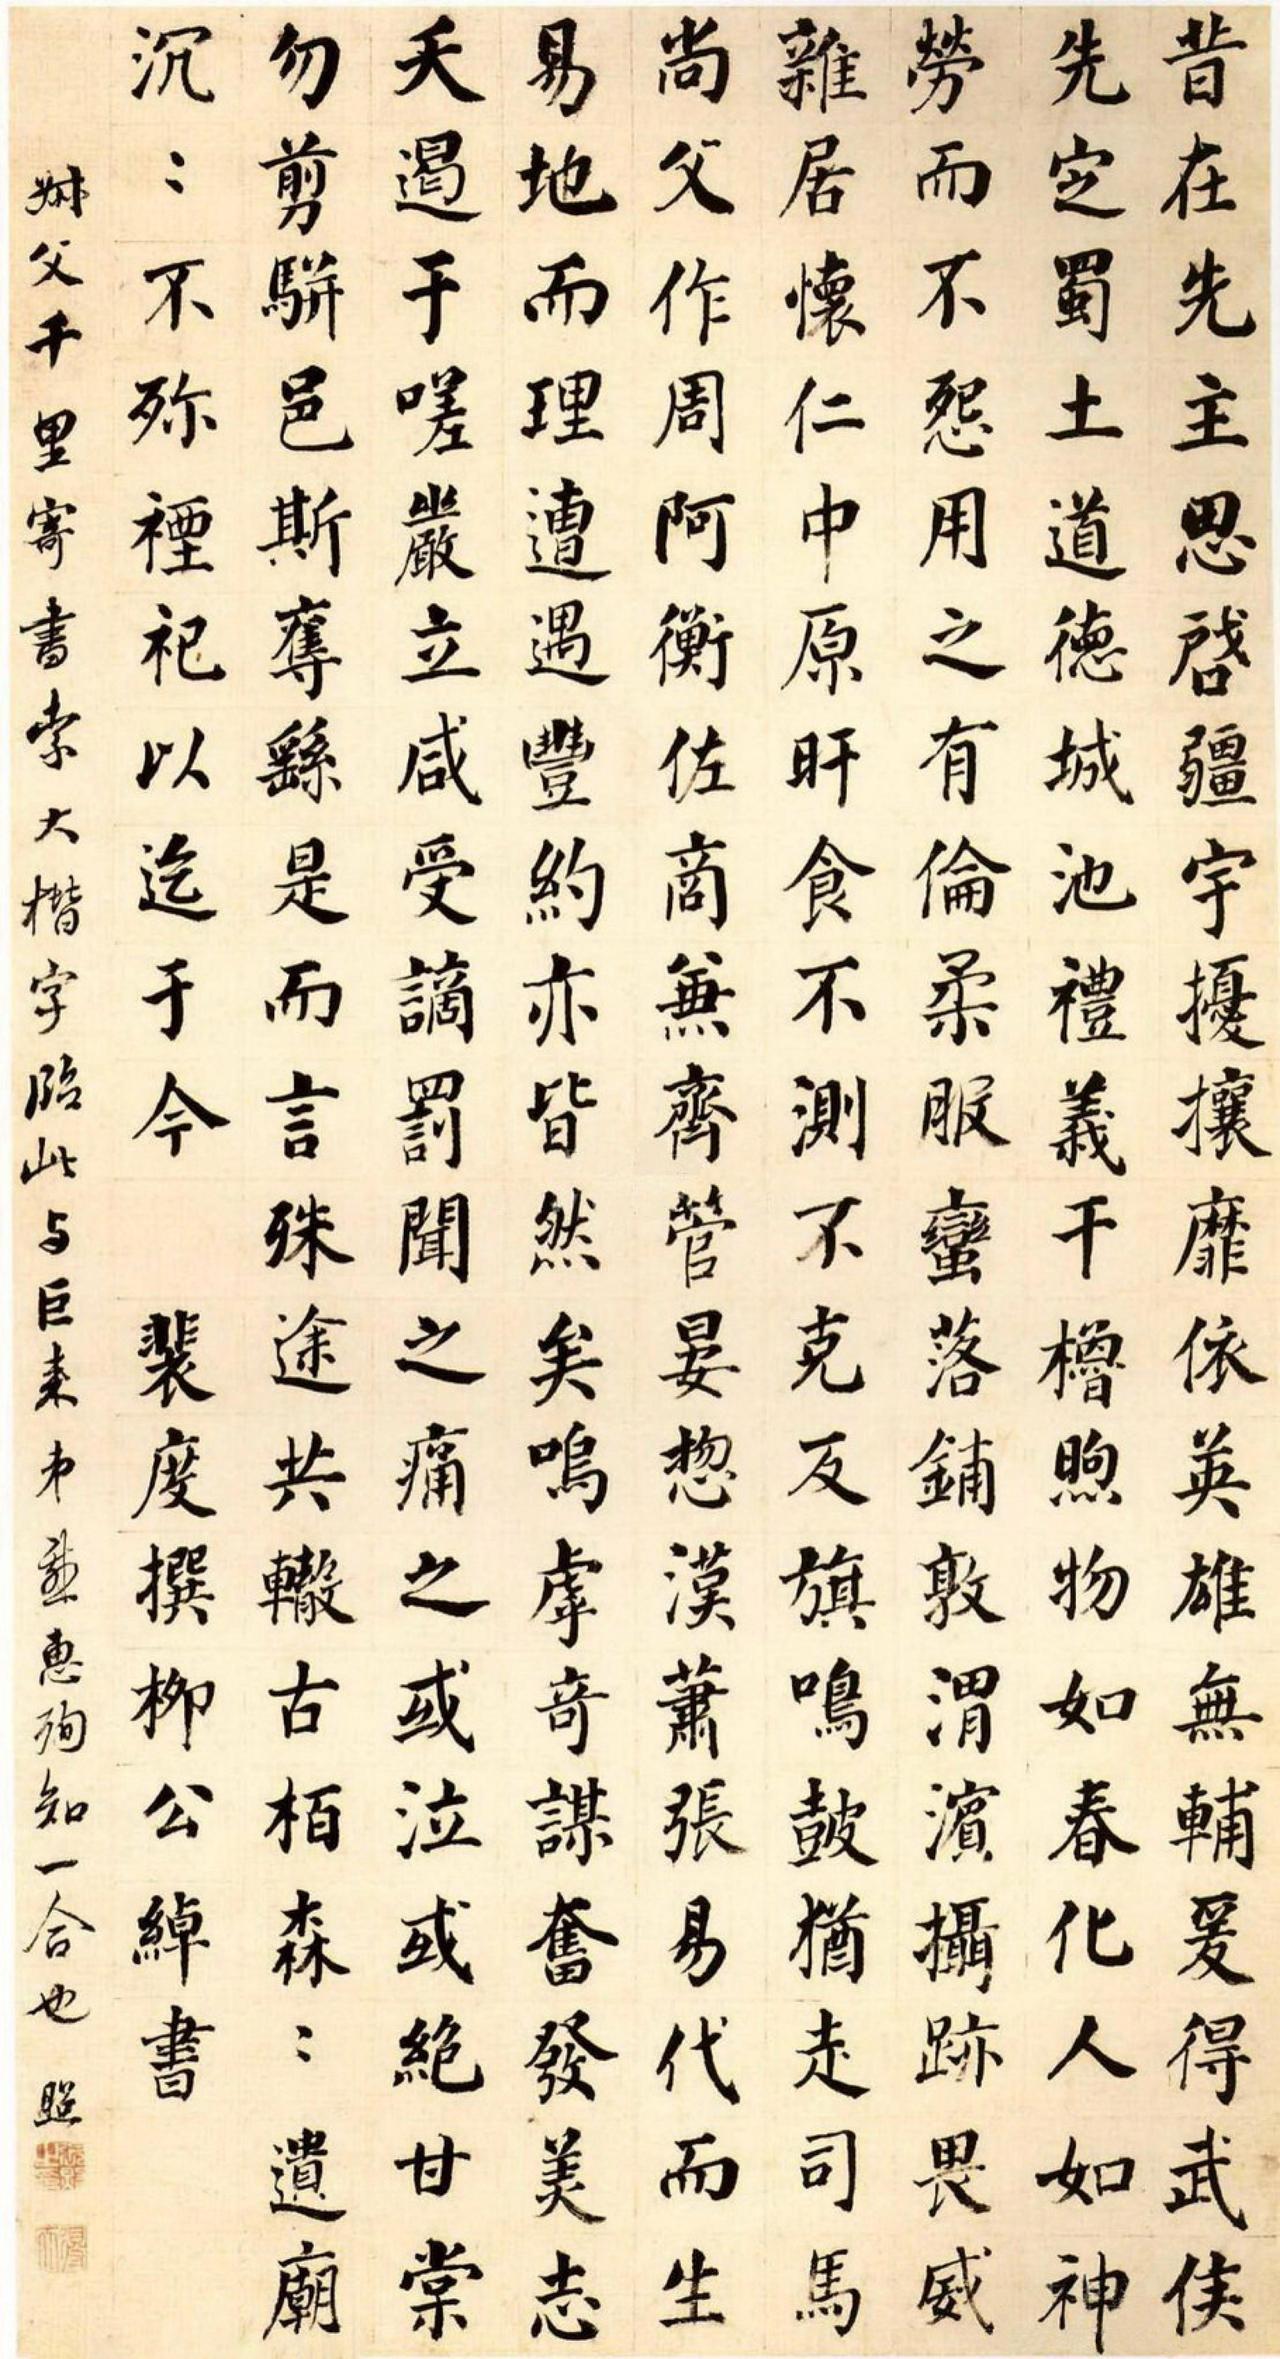 昔在先主思啓疆宇擾攘靡依英雄無輔爰得武侯
先定蜀土道德城池禮義干櫓煦物如春化人如神
勞而不怨用之有倫柔服蠻落鋪敦渭濱攝跡畏威
雜居懷仁中原旰食不測不克反旗鳴鼓猶走司馬
尚父作周阿衡佐商兼齊管晏摠漢蕭張易代而生
易地而理遭遇豐約亦皆然矣嗚虖奇謀奮發美志
夭遏于嗟嚴立咸受謫罰聞之痛之或泣或絕甘棠
勿剪駢邑斯奪繇是而言殊途共轍古栢森〻遺廟
沉〻不殄禋祀以迄于今 裴度撰柳公綽書
姊父千里寄書索大楷字臨此与巨来弟並惠殉知一合也 照